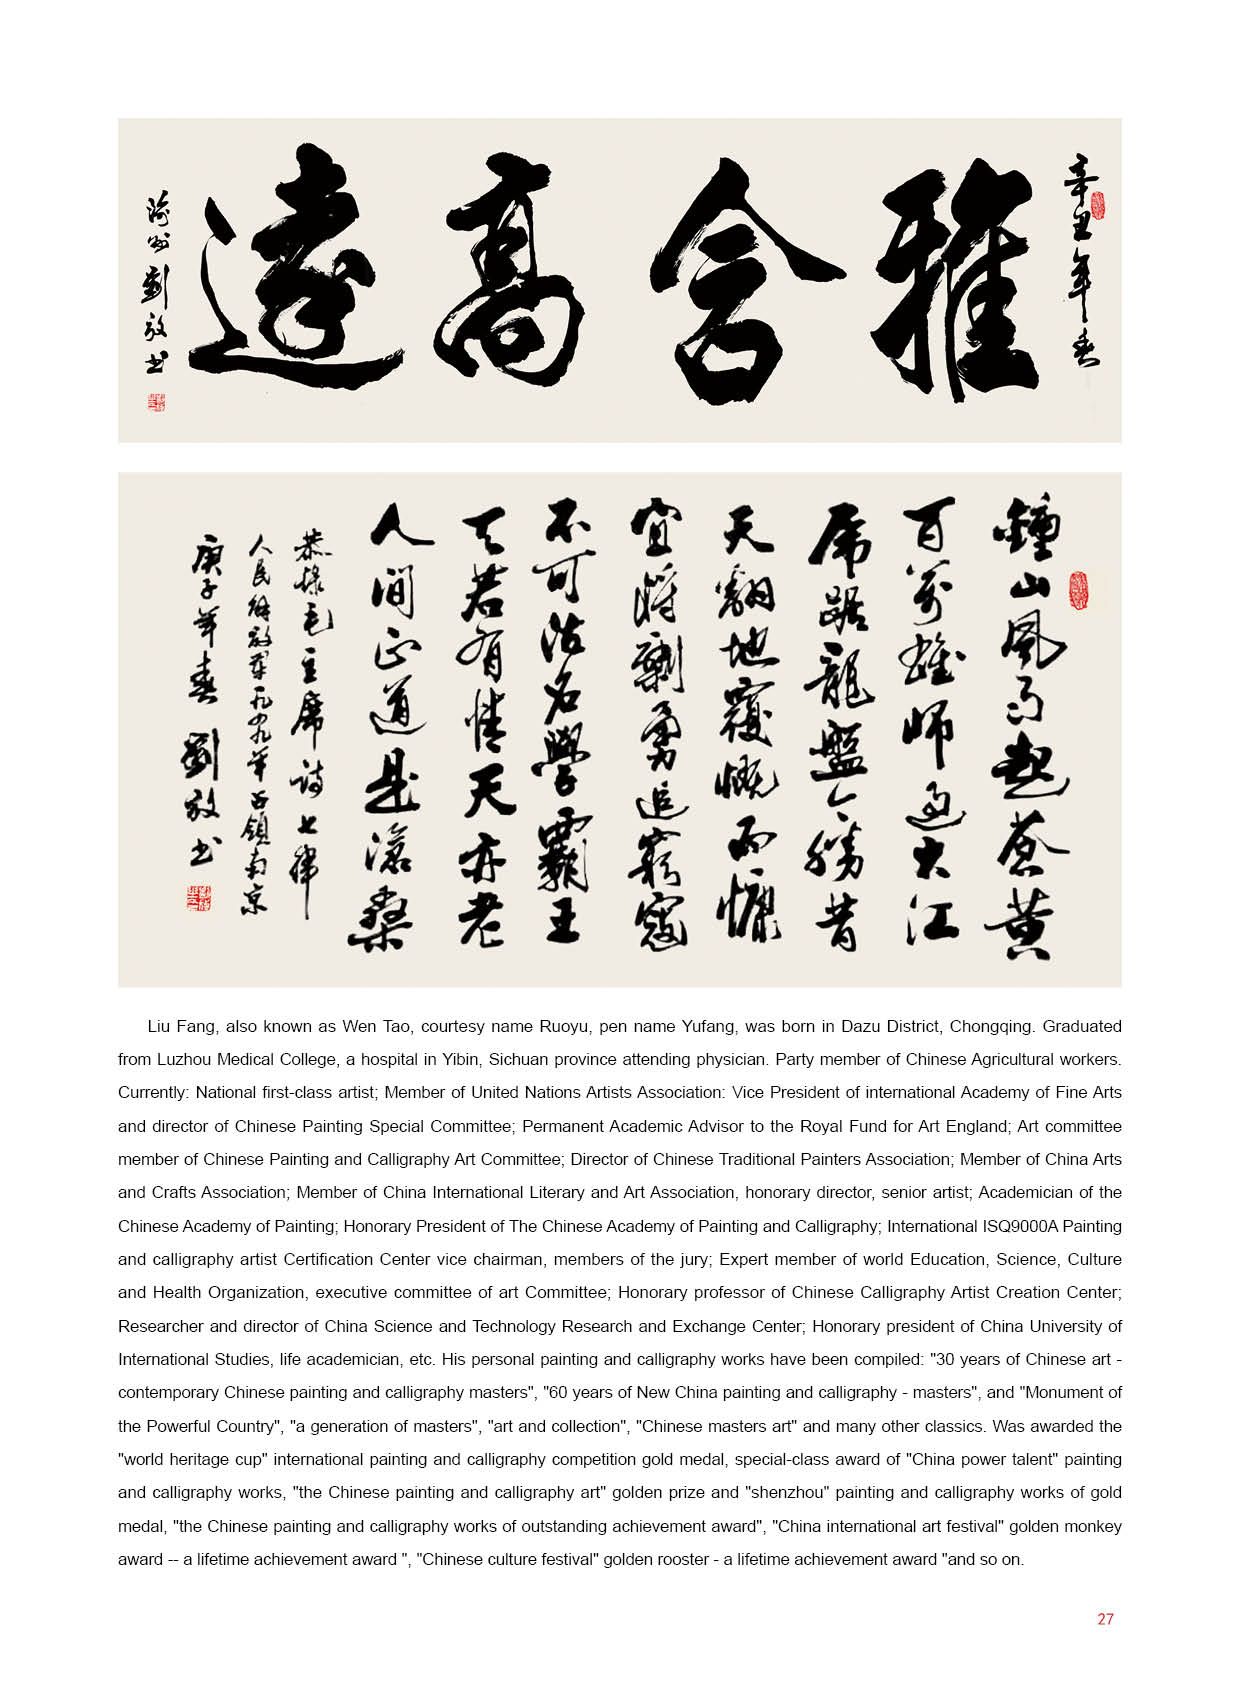 辛丑年春
雅含高遠
渝州劉放書
鐘山風雨起蒼黃
百萬雄師過大江
虎踞龍盤今勝昔
天翻地覆慨而慷
宜將剩勇追窮寇
不可沽名學霸王
天若有情天亦老
人間正道是滄桑
恭錄毛主席詩七律
人民解放軍一九四九年占領南京
庚子年春 劉放書
Liu Fang, also known as Wen Tao, courtesy name Ruoyu, pen name Yufang, was born in Dazu District, Chongqing. Graduated
from Luzhou Medical College, a hospital in Yibin, Sichuan province attending physician. Party member of Chinese Agricultural workers.
Currently: National first-class artist; Member of United Nations Artists Association: Vice President of international Academy of Fine Arts
and director of Chinese Painting Special Committee; Permanent Academic Advisor to the Royal Fund for Art England; Art committee
member of Chinese Painting and Calligraphy Art Committee; Director of Chinese Traditional Painters Association; Member of China Arts
and Crafts Association; Member of China International Literary and Art Association, honorary director, senior artist; Academician of the
Chinese Academy of Painting; Honorary President of The Chinese Academy of Painting and Calligraphy; International ISQ9000A Painting
and calligraphy artist Certification Center vice chairman, members of the jury; Expert member of world Education, Science, Culture
and Health Organization, executive committee of art Committee; Honorary professor of Chinese Calligraphy Artist Creation Center;
Researcher and director of China Science and Technology Research and Exchange Center; Honorary president of China University of
International Studies, life academician, etc. His personal painting and calligraphy works have been compiled: "30 years of Chinese art -
contemporary Chinese painting and calligraphy masters", "60 years of New China painting and calligraphy - masters", and "Monument of
the Powerful Country", "a generation of masters", "art and collection", "Chinese masters art" and many other classics. Was awarded the
"world heritage cup" international painting and calligraphy competition gold medal, special-class award of "China power talent" painting
and calligraphy works, "the Chinese painting and calligraphy art" golden prize and "shenzhou" painting and calligraphy works of gold
medal, "the Chinese painting and calligraphy works of outstanding achievement award", "China international art festival" golden monkey
award -- a lifetime achievement award ", "Chinese culture festival" golden rooster - a lifetime achievement award "and so on.
27